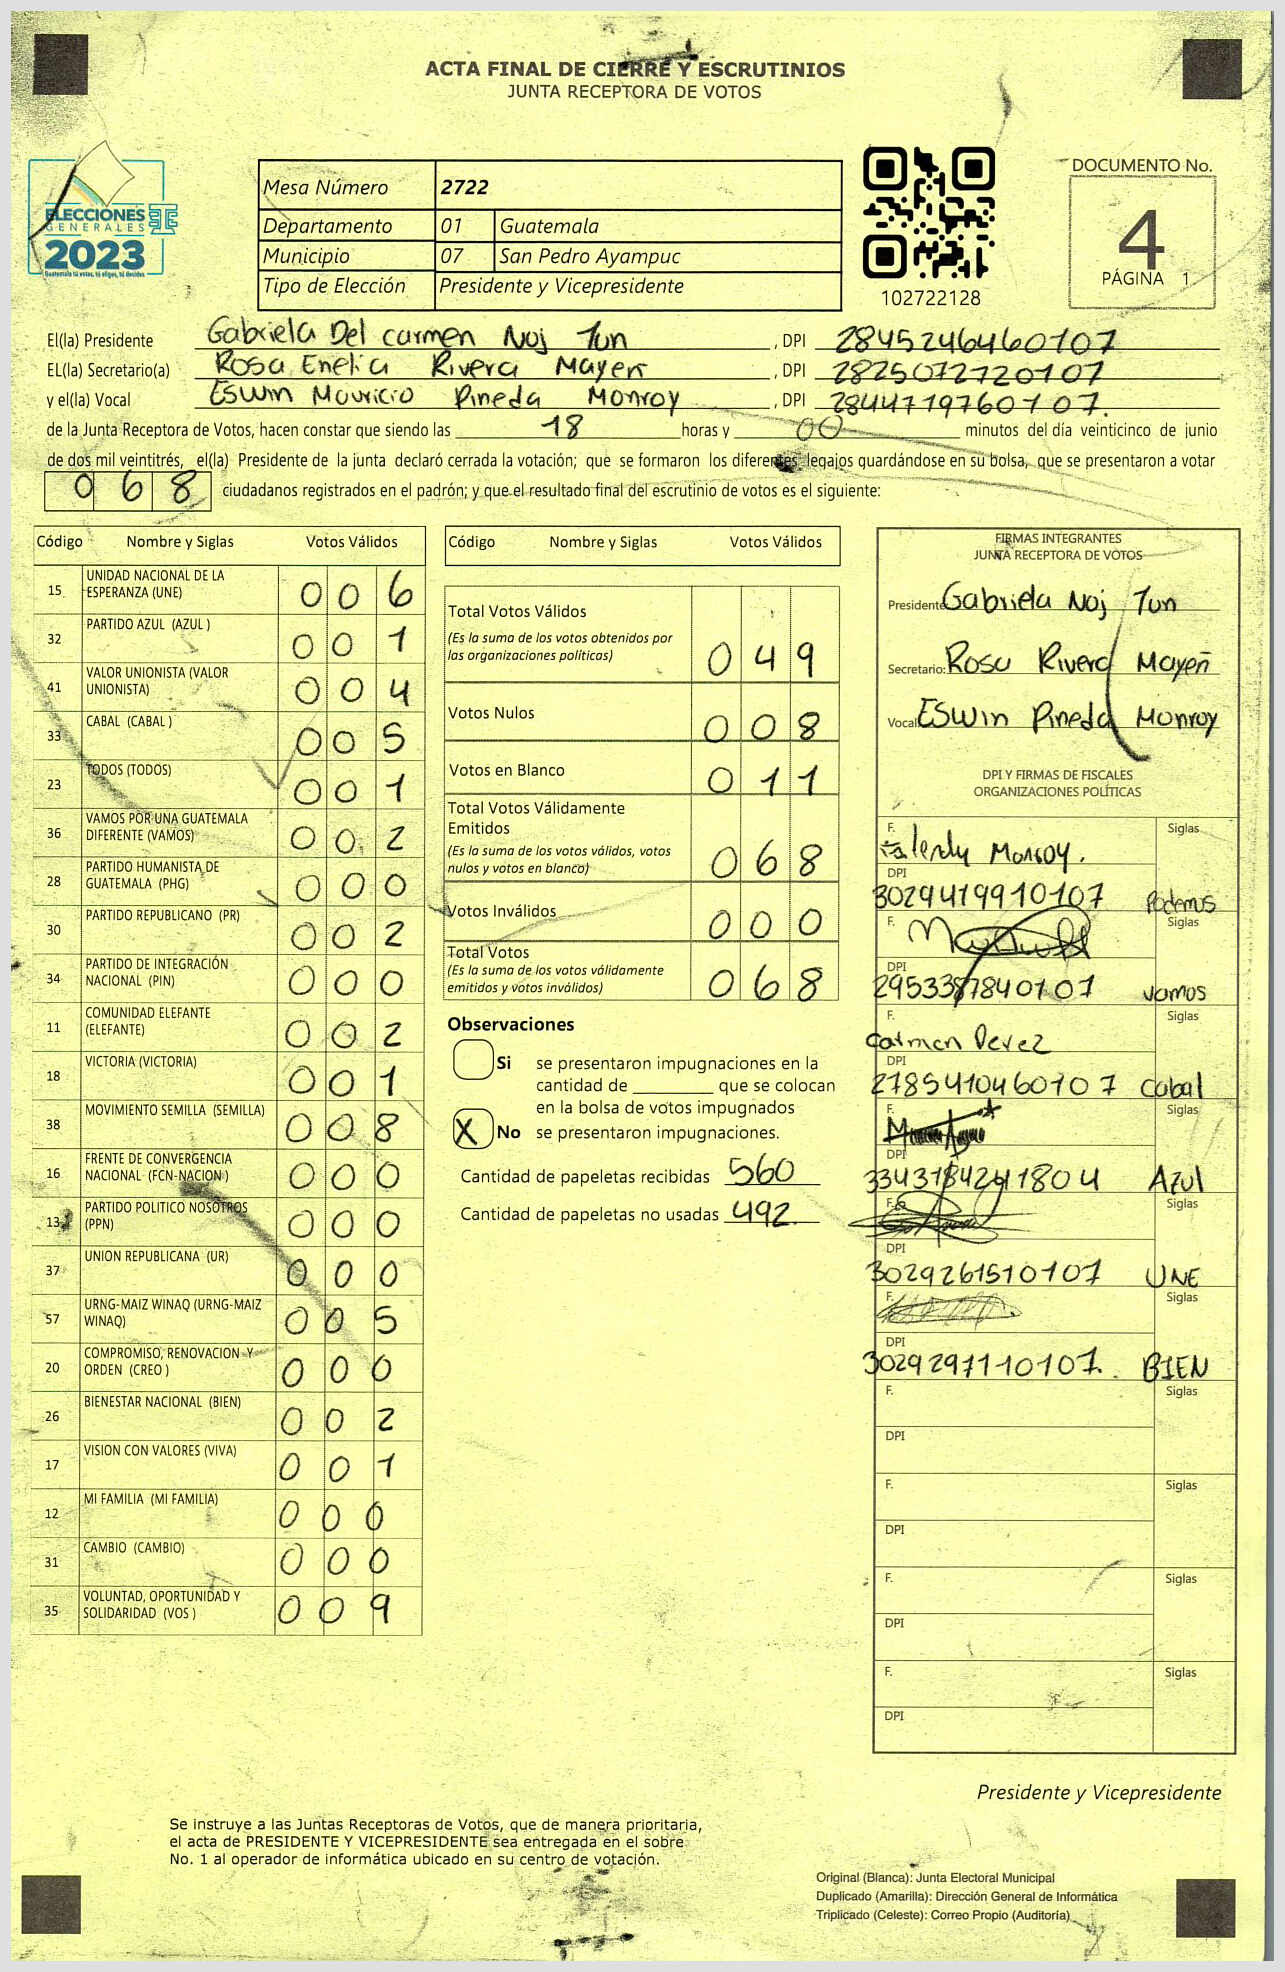 ACTA FINAL DE CIERRE Y ESCRUTINIOS
JUNTA RECEPTORA DE VOTOS
ELECCIONES
GENERALES
2023
Guatemala tú votas, tú eliges, tú decides
Mesa Número 2722
Departamento 01 Guatemala
Municipio 07 San Pedro Ayampuc
Tipo de Elección Presidente y Vicepresidente
102722128
DOCUMENTO No.
4
PÁGINA 1
El(la) Presidente Gabriela Del carmen Noj Tun , DPI 2845246460107
EL(la) Secretario(a) Rosa Enelia Rivera Mayen , DPI 2825072720107
y el(la) Vocal Eswin Mauricio Pineda Monroy , DPI 2844719760107.
de la Junta Receptora de Votos, hacen constar que siendo las 18 horas y 00 minutos del día veinticinco de junio
de dos mil veintitrés, el(la) Presidente de la junta declaró cerrada la votación; que se formaron los diferentes legajos guardándose en su bolsa, que se presentaron a votar
068 ciudadanos registrados en el padrón; y que el resultado final del escrutinio de votos es el siguiente:
Código Nombre y Siglas Votos Válidos
15 UNIDAD NACIONAL DE LA ESPERANZA (UNE) 006
32 PARTIDO AZUL (AZUL ) 001
41 VALOR UNIONISTA (VALOR UNIONISTA) 004
33 CABAL (CABAL ) 005
23 TODOS (TODOS) 001
36 VAMOS POR UNA GUATEMALA DIFERENTE (VAMOS) 002
28 PARTIDO HUMANISTA DE GUATEMALA (PHG) 000
30 PARTIDO REPUBLICANO (PR) 002
34 PARTIDO DE INTEGRACIÓN NACIONAL (PIN) 000
11 COMUNIDAD ELEFANTE (ELEFANTE) 002
18 VICTORIA (VICTORIA) 001
38 MOVIMIENTO SEMILLA (SEMILLA) 008
16 FRENTE DE CONVERGENCIA NACIONAL (FCN-NACION ) 000
13 PARTIDO POLITICO NOSOTROS (PPN) 000
37 UNION REPUBLICANA (UR) 000
57 URNG-MAIZ WINAQ (URNG-MAIZ WINAQ) 005
20 COMPROMISO, RENOVACION Y ORDEN (CREO ) 000
26 BIENESTAR NACIONAL (BIEN) 002
17 VISION CON VALORES (VIVA) 001
12 MI FAMILIA (MI FAMILIA) 000
31 CAMBIO (CAMBIO) 000
35 VOLUNTAD, OPORTUNIDAD Y SOLIDARIDAD (VOS ) 009
Código Nombre y Siglas Votos Válidos
Total Votos Válidos
(Es la suma de los votos obtenidos por
las organizaciones políticas) 049
Votos Nulos 008
Votos en Blanco 011
Total Votos Válidamente
Emitidos
(Es la suma de los votos válidos, votos
nulos y votos en blanco) 068
Votos Inválidos 000
Total Votos
(Es la suma de los votos válidamente
emitidos y votos inválidos) 068
Observaciones
Si se presentaron impugnaciones en la
cantidad de ________ que se colocan
en la bolsa de votos impugnados
X No se presentaron impugnaciones.
Cantidad de papeletas recibidas 560
Cantidad de papeletas no usadas 492
FIRMAS INTEGRANTES
JUNTA RECEPTORA DE VOTOS
Presidente: Gabriela Noj Tun
Secretario: Rosa Rivera Mayen
Vocal: Eswin Pineda Monroy
DPI Y FIRMAS DE FISCALES
ORGANIZACIONES POLÍTICAS
F. Monroy. Siglas
DPI 3029419910107 Podemos
F. Siglas
DPI 2953387840107 vamos
F. Carmen Perez Siglas
DPI 2785410460107 Cabal
F. Siglas
DPI 3343184241804 Azul
F. Siglas
DPI 3029261510107 UNE
F. Siglas
DPI 3029297110107. BIEN
F. Siglas
DPI
F. Siglas
DPI
F. Siglas
DPI
F. Siglas
DPI
Presidente y Vicepresidente
Se instruye a las Juntas Receptoras de Votos, que de manera prioritaria,
el acta de PRESIDENTE Y VICEPRESIDENTE sea entregada en el sobre
No. 1 al operador de informática ubicado en su centro de votación.
Original (Blanca): Junta Electoral Municipal
Duplicado (Amarilla): Dirección General de Informática
Triplicado (Celeste): Correo Propio (Auditoría)